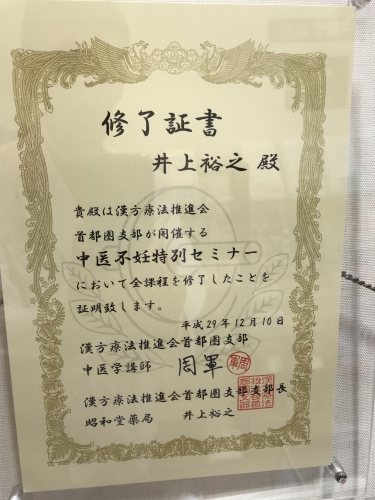 修了証書
井上裕之 殿
貴殿は漢方療法推進会
首都圏支部が開催する
中医不妊特別セミナー
において全課程を修了したことを
証明致します。
平成29年12月10日
漢方療法推進会首都圏支部
中医学講師 周軍
周軍
漢方療法推進会首都圏支部支部長
昭和堂薬局 井上裕之